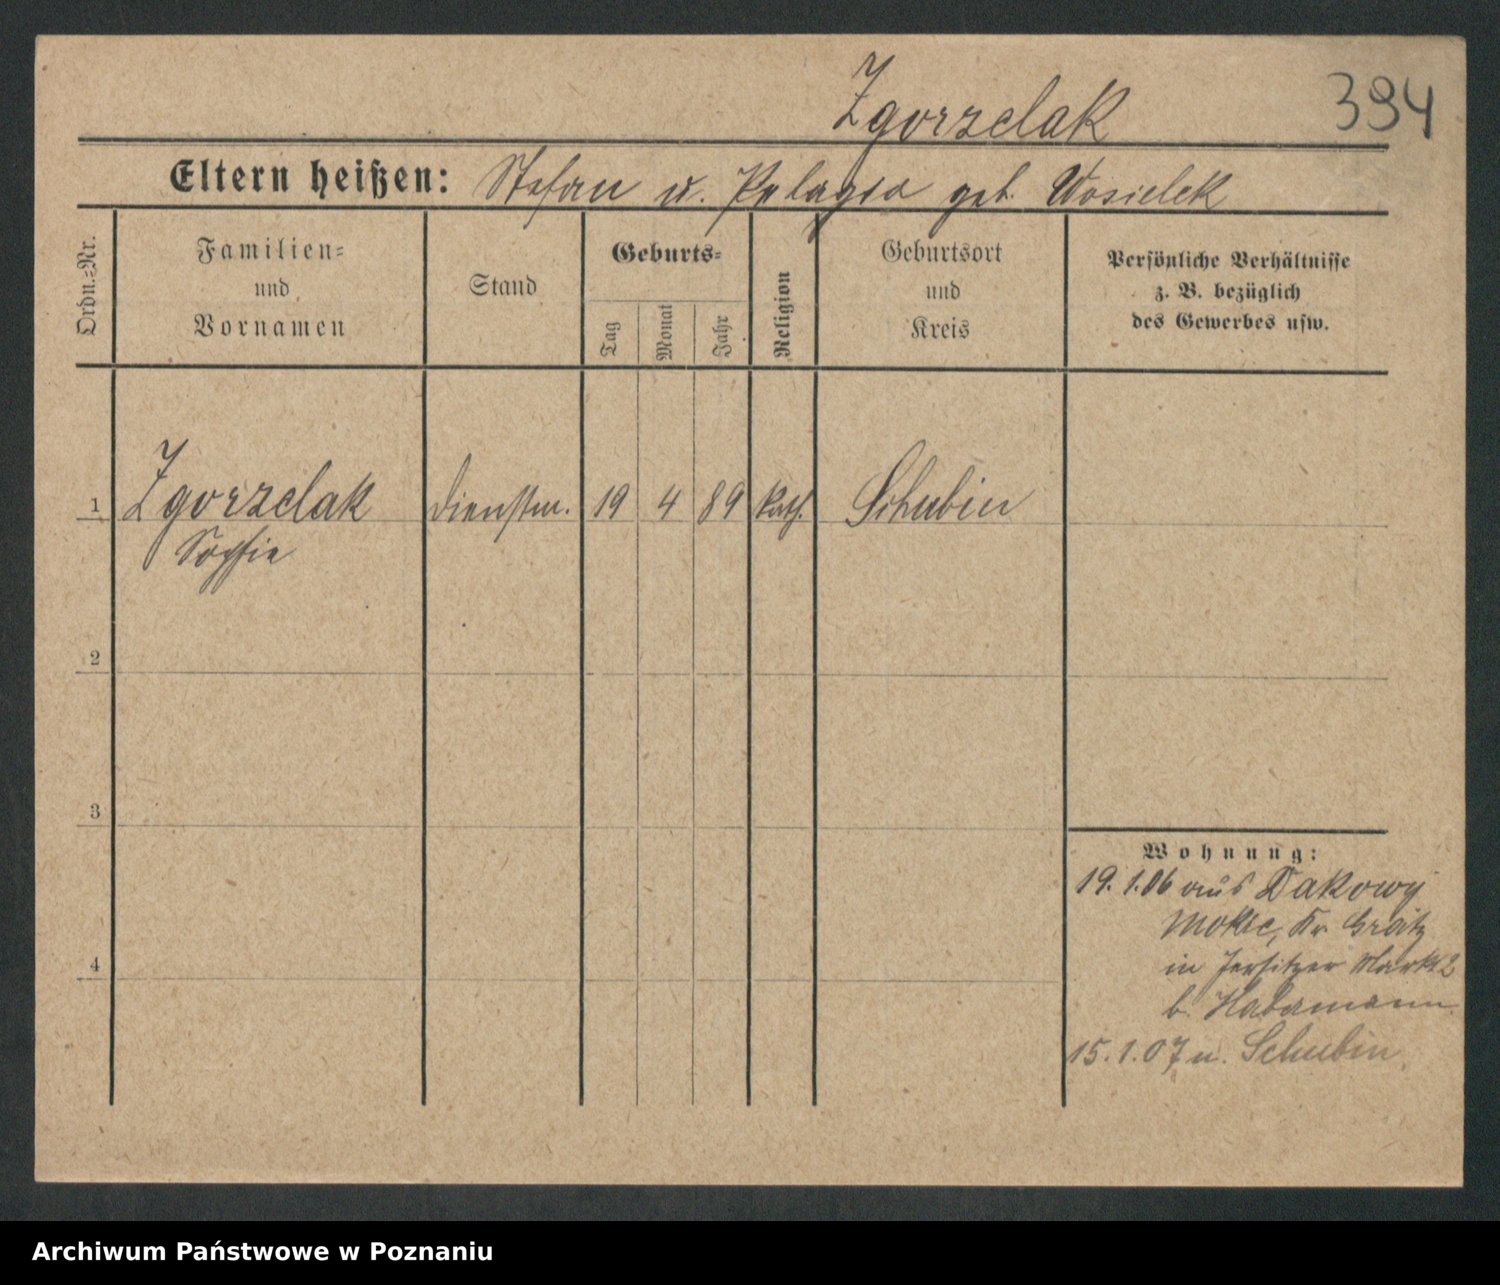 Zgorzelak
394
Eltern heißen: Stefan u. Pelagia geb. Wosielek
Ordn.=Nr.
Familien=
und
Vornamen
Stand
Geburts=
Tag
Monat
Jahr
Religion
Geburtsort
und
Kreis
Persönliche Verhältnisse
z. B. bezüglich
des Gewerbes usw.
1 Zgorzelak dienstm. 19 4 89 kath. Schubin
Sophie
2
3
4
Wohnung:
19. 1.06 aus Dakowy
Mokre, Kr. Grätz
in Jersitzer Markt 2
b.
15. 1. 07 n. Schubin
Archiwum Państwowe w Poznaniu